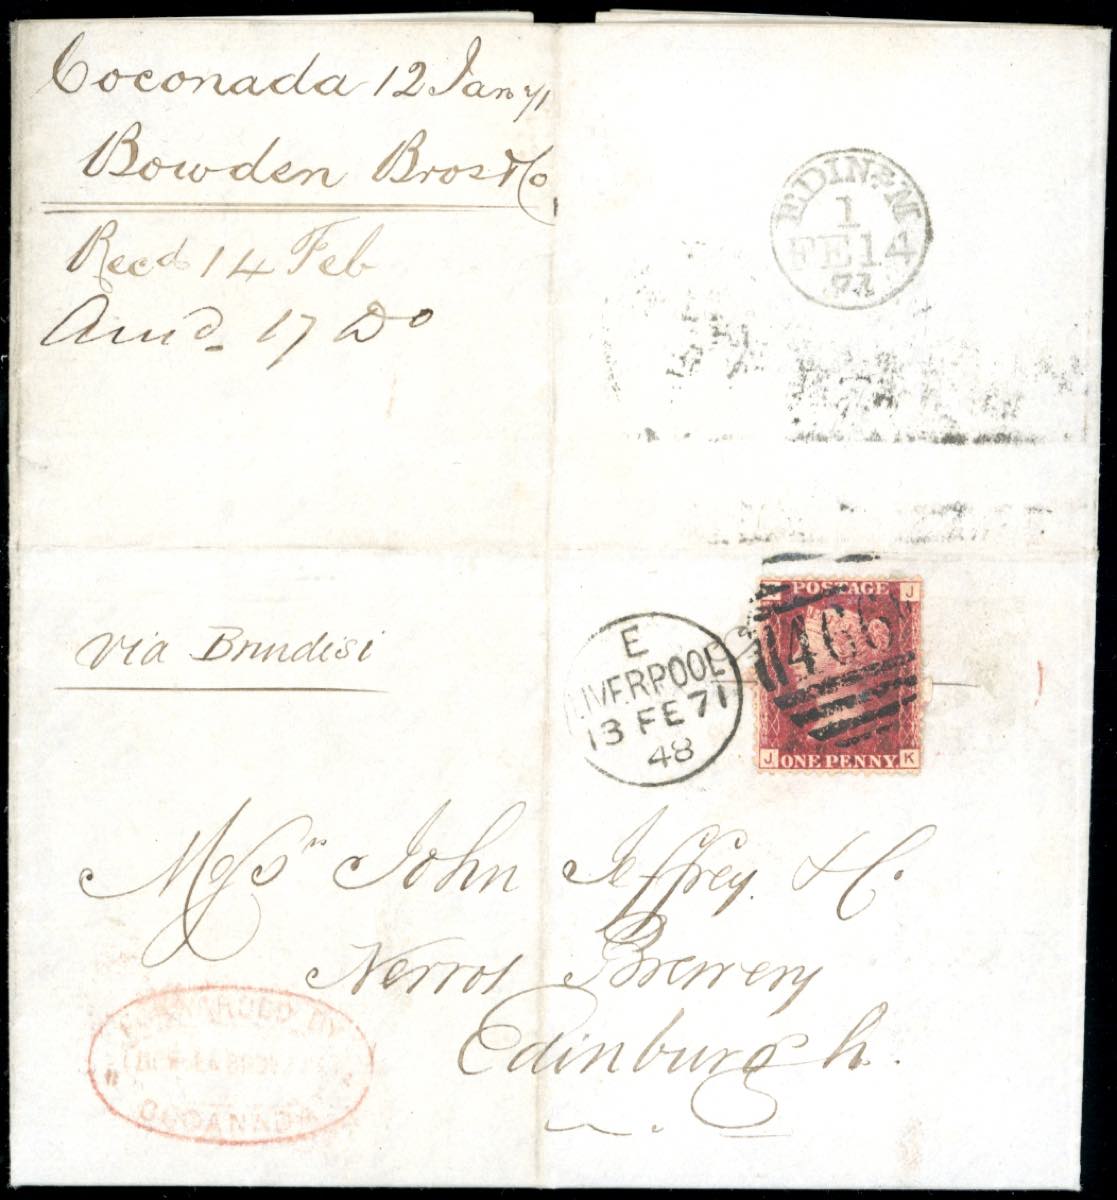 Coconada 12 Jany 71
Bowden Bros & Co
Recd 14 Feb
Ansd 17 Do
EDINR M
1
FE 14
71
Via Brindisi
E
LIVERPOOL
13 FE 71
48
466
J
POSTAGE
J
ONE PENNY
K
Messrs John Jeffrey & Co.
Brewery
Edinburgh.
FORWARDED BY
COCANADA